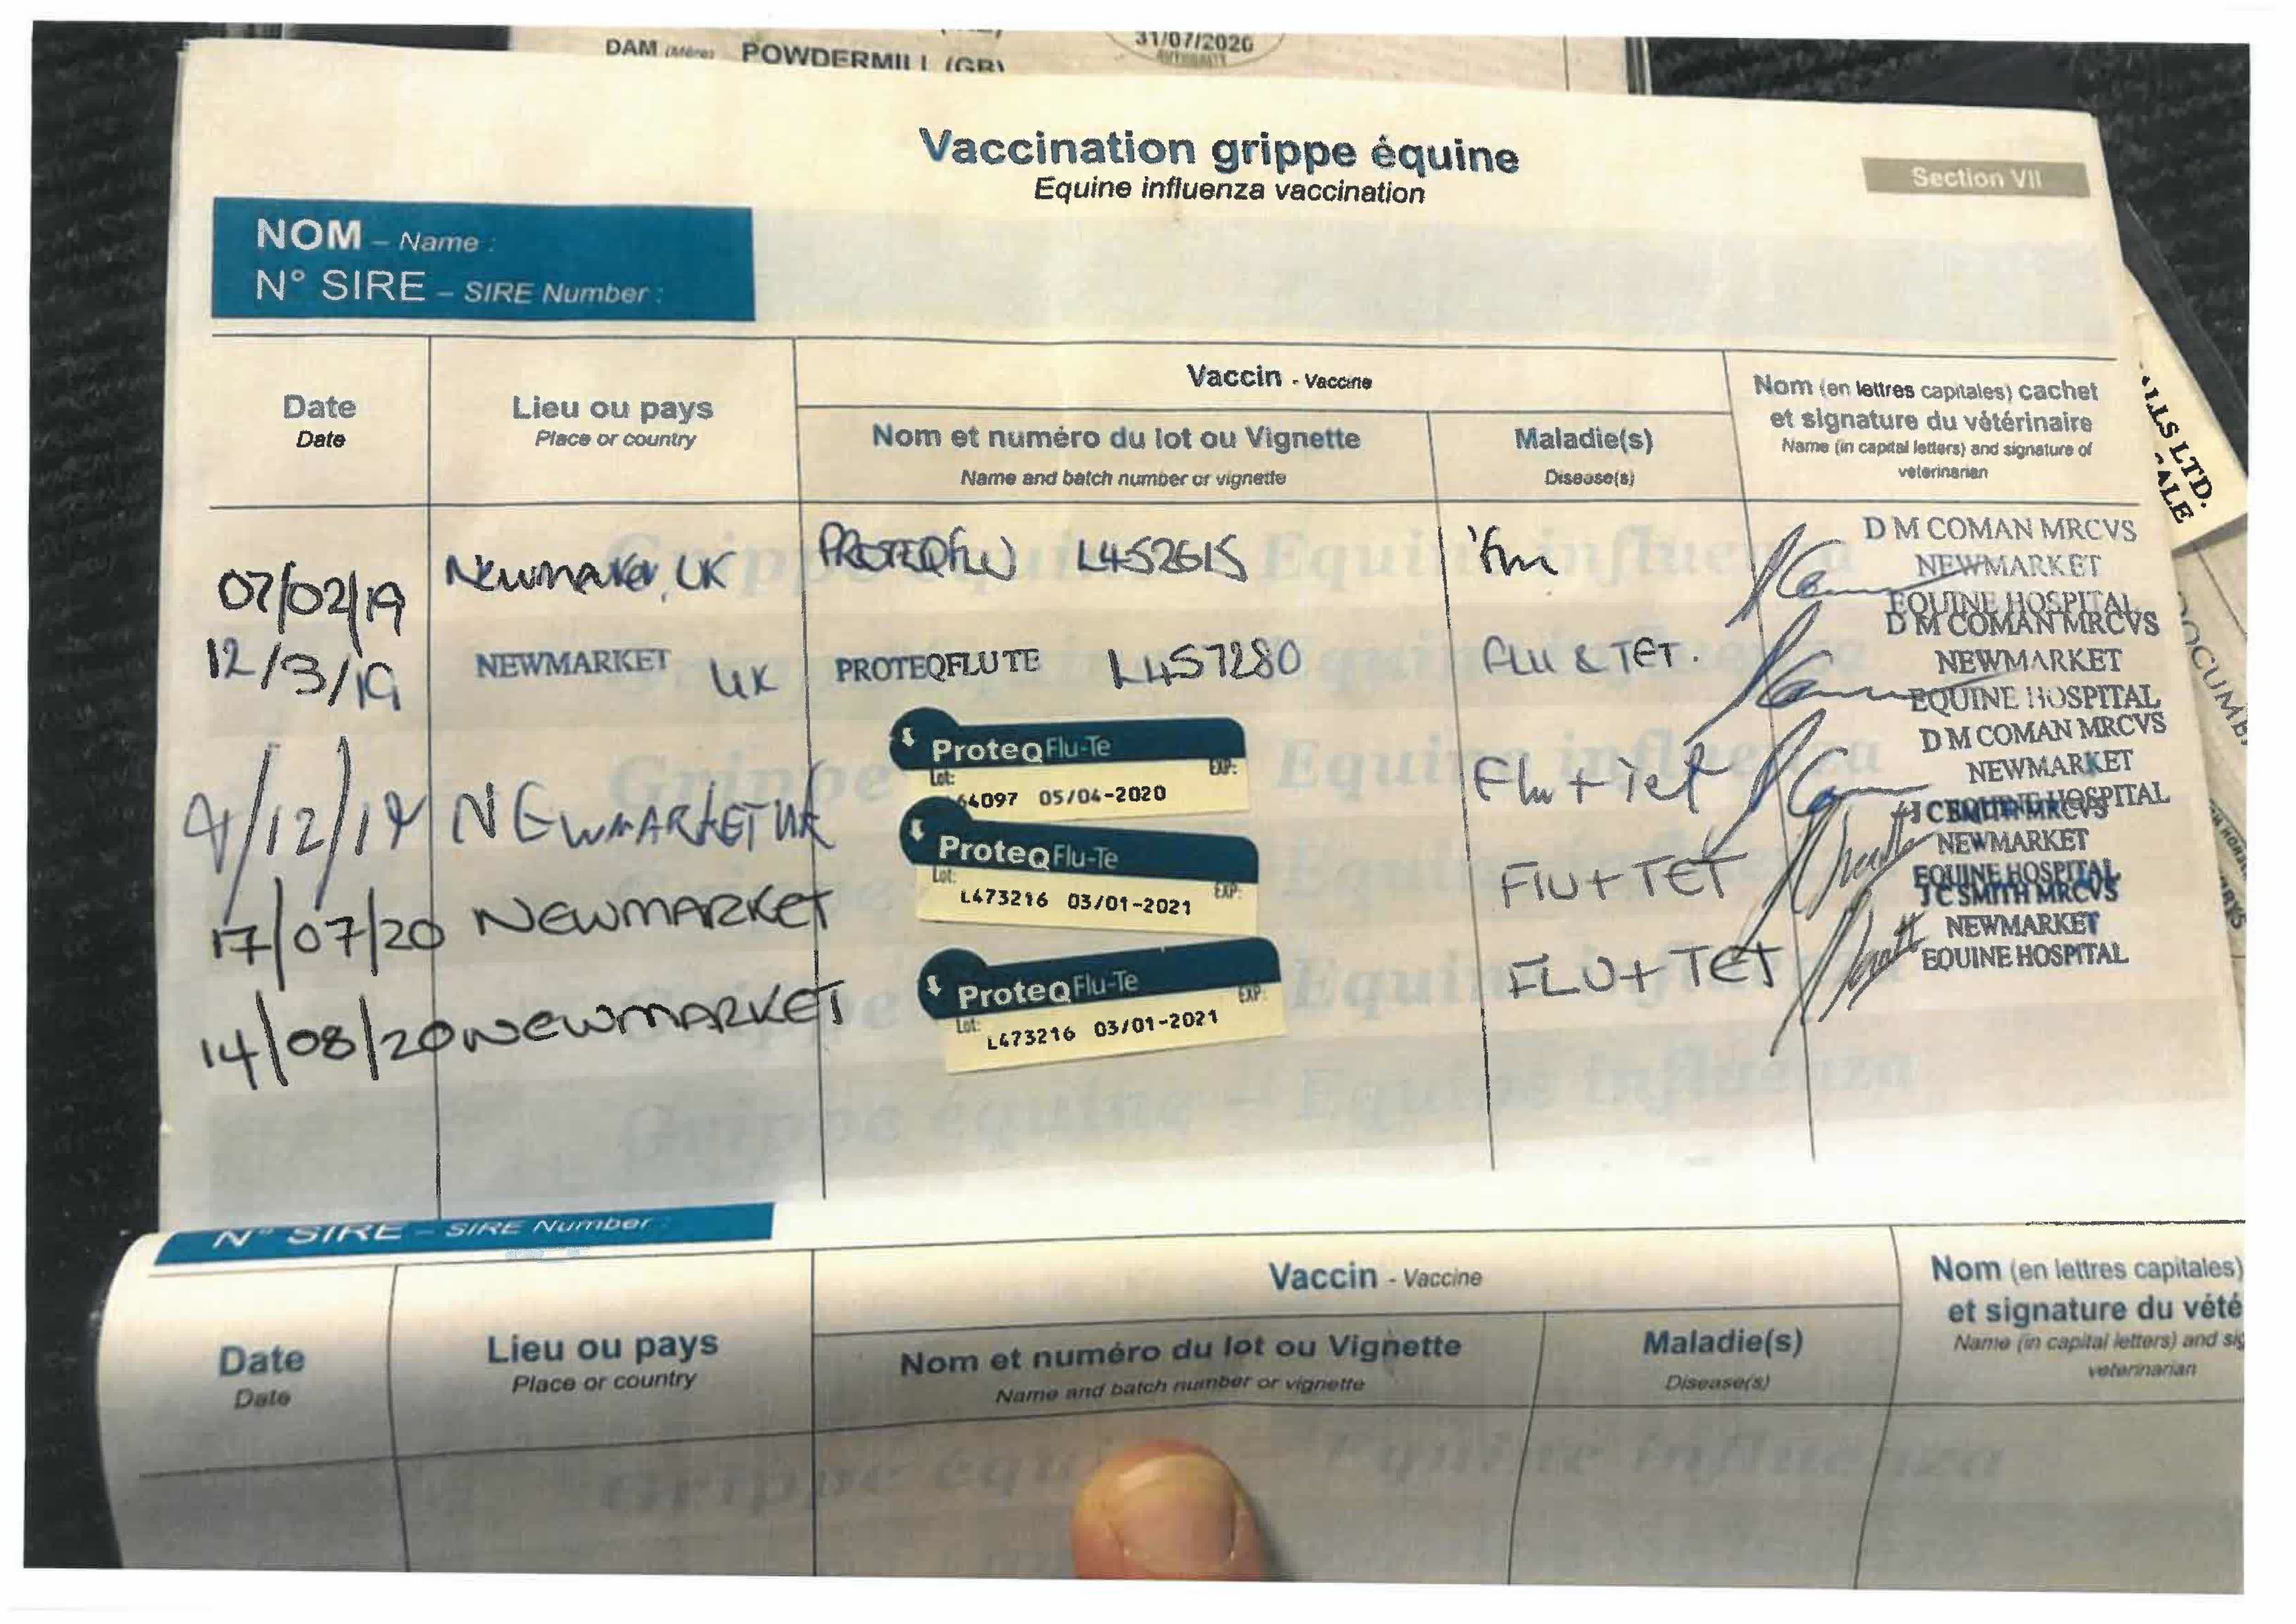 DAM (Mère) POWDERMILL (GB)
31/07/2020
Vaccination grippe équine
Equine influenza vaccination
Section VII
NOM – Name :
N° SIRE – SIRE Number :
Date
Date
Lieu ou pays
Place or country
Vaccin - Vaccine
Nom et numéro du lot ou Vignette
Name and batch number or vignette
Maladie(s)
Disease(s)
Nom (en lettres capitales) cachet
et signature du vétérinaire
Name (in capital letters) and signature of
veterinarian
07/02/19 Newmarket, UK PROTEQFLU L452615
D M COMAN MRCVS
NEWMARKET
EQUINE HOSPITAL
12/3/19 NEWMARKET UK PROTEQFLUTE L457280 FLU & TET.
D M COMAN MRCVS
NEWMARKET
EQUINE HOSPITAL
/12/19 NEWMARKET UK
ProteqFlu-Te
Lot: EXP:
64097 05/04-2020
Flu + Tet
D M COMAN MRCVS
NEWMARKET
EQUINE HOSPITAL
17/07/20 NEWMARKET
ProteqFlu-Te
Lot: EXP:
L473216 03/01-2021
FLU + TET
MRCVS
NEWMARKET
EQUINE HOSPITAL
14/08/20 NEWMARKET
ProteqFlu-Te
Lot: EXP:
L473216 03/01-2021
FLU + TET
J C SMITH MRCVS
NEWMARKET
EQUINE HOSPITAL
Grippe équine – Equine influenza
LLS LTD.
ALE
DOCUME
N° SIRE – SIRE Number :
Date
Date
Lieu ou pays
Place or country
Vaccin - Vaccine
Nom et numéro du lot ou Vignette
Name and batch number or vignette
Maladie(s)
Disease(s)
Nom (en lettres capitales)
et signature du vété
Name (in capital letters) and sig
veterinarian
Grippe équi Equine influenza